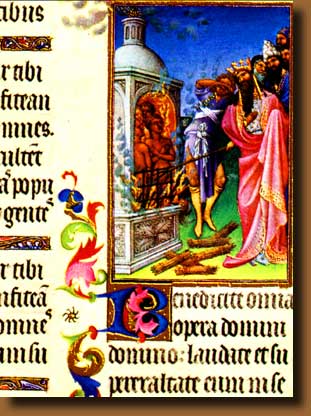 tibus
r tibi
fitean
mnes.
popu
gentˢ
r tibi
nfiteā
omneˢ
Benedicite omnia
opera domini
domino: laudate et su
perexaltate eum in se